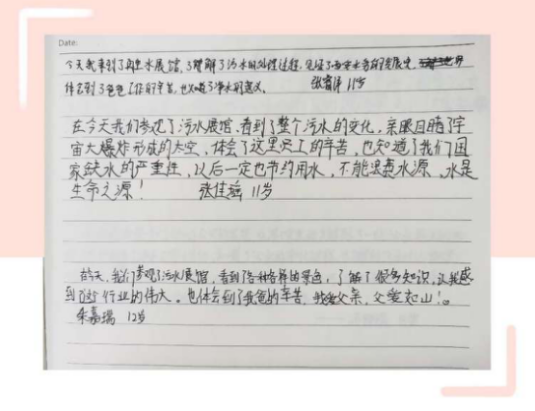 Date:
今天我来到了再生水展馆,了解了污水的处理过程,见证了西安水务的发展史,
体会到了爸爸工作的辛苦,也知道了净水的意义。 张睿 11岁
在今天我们参观了污水展馆,看到了整个污水的变化,亲眼目睹了宇
宙大爆炸形成的太空,体会了这里员工的辛苦,也知道了我们国
家缺水的严重性,以后一定也节约用水,不能浪费水源,水是
生命之源! 张佳瑶 11岁
在今天,我们参观了污水展馆,看到了各种各样的景色,了解了很多知识,让我感
到 行业的伟大。也体会到了我爸的辛苦,我爱父亲,父爱如山!。
朱嘉瑞 12岁